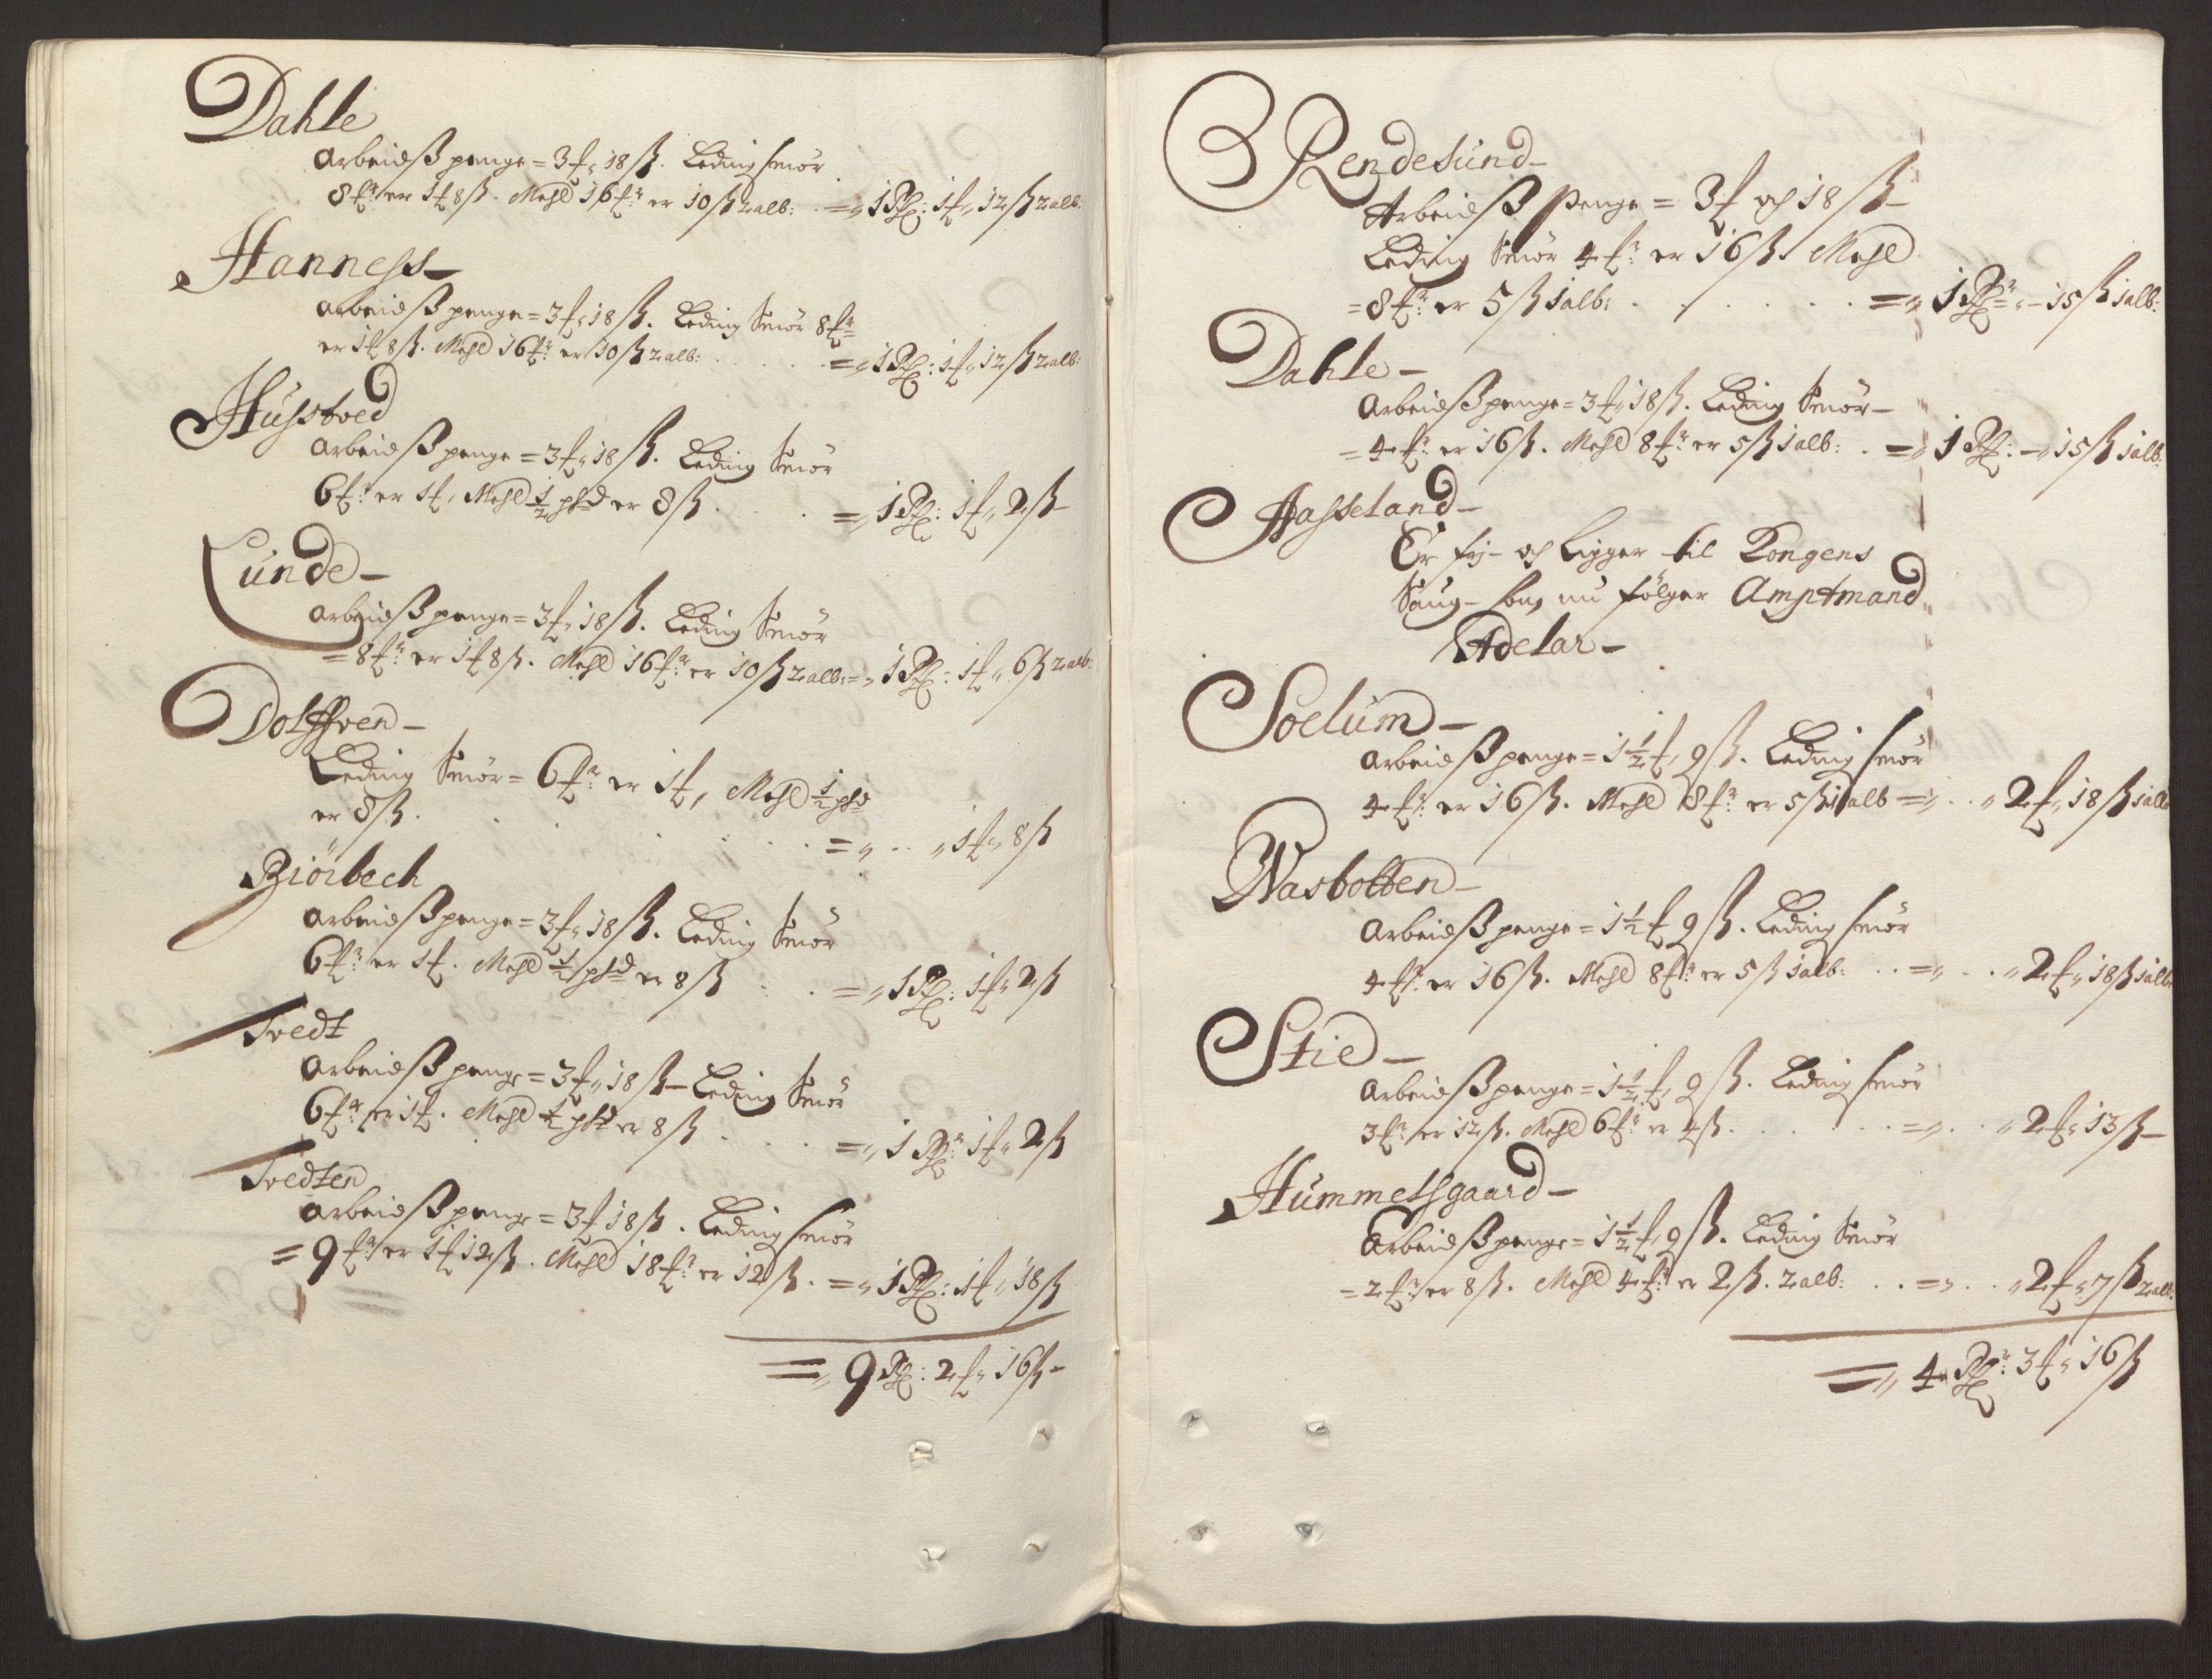 Dahle
Arbeidß penge = 3 f „ 18 ß. Leding smör
8 tr: er 1 f 8 ß. Mehl 16 tr: er 10 ß 2 alb: = „ 1 Rf: 1 f „ 12 ß 2 alb:
Hanness –
Arbeidß penge = 3 f „ 18 ß. Leding Smör 8 tr:
er 1 f 8 ß. Mehl 16 tr: er 10 ß 2 alb: = „ 1 Rf: 1 f „ 12 ß 2 alb:
Hustved
Arbeidß penge = 3 f „ 18 ß. Leding Smör
6 tr: er 1 f, Mehl ½ pfd er 8 ß . . = „ 1 Rf: 1 f „ 2 ß –
Lunde –
Arbeidß penge = 3 f „ 18 ß. Leding Smör
= 8 tr: er 1 f 8 ß. Mehl 16 tr: er 10 ß 2 alb: = „ 1 Rf: 1 f „ 6 ß 2 alb:
Dolffven –
Leding Smör = 6 tr: er 1 f, Mehl ½ pfd
er 8 ß . . . . . = „ . . „ 1 f „ 8 ß
Biörbech
Arbeidß penge = 3 f „ 18 ß. Leding Smör
6 tr: er 1 f. Mehl ½ pfd er 8 ß . . = „ 1 Rf: 1 f „ 2 ß
Tvedt
Arbeidß penge = 3 f „ 18 ß – Leding Smör
6 tr: er 1 f. Mehl ½ pfd er 8 ß . . . = „ 1 Rf: 1 f „ 2 ß
Tvedten
Arbeidß penge = 3 f 18 ß. Leding smör
= 9 tr: er 1 f 12 ß. Mehl 18 tr: er 12 ß. = „ 1 Rf: 1 f „ 18 ß
= „ 9 Rf: 2 f „ 16 ß –
Rendesund –
Arbeidß Penge = 3 f och 18 ß –
Leding Smör 4 tr: er 16 ß. Mehl
= 8 tr: er 5 ß 1 alb: . . . . . = „ 1 Rf: „ – 15 ß 1 alb:
Dahle –
Arbeidß penge = 3 f „ 18 ß. Leding Smör –
= 4 tr: er 16 ß. Mehl 8 tr: er 5 ß 1 alb: . = „ 1 Rf: – „ 15 ß 1 alb:
Hasseland –
Er frj – och Ligger til Kongens
Saug – som nu fölger Amptmand
Adelar –
Soelum –
Arbeidß penge = 1 ½ f „ 9 ß. Leding smör
4 tr: er 16 ß. Mehl 8 tr: er 5 ß 1 alb = „ . . „ 2 f „ 18 ß 1 alb
Wasbotten –
Arbeidß penge = 1 ½ f 9 ß. Leding smör
4 tr: er 16 ß. Mehl 8 tr: er 5 ß 1 alb: . . = „ . . „ 2 f „ 18 ß 1 alb:
Stie –
Arbeidß penge = 1 ½ f, 9 ß. Leding smör
3 tr: er 12 ß. Mehl 6 tr: er 4 ß. . . . . = „ . . „ 2 f „ 13 ß –
Hummelsgaard –
Arbeidß penge = 1 ½ f, 9 ß. Leding Smör
= 2 tr: er 8 ß. Mehl 4 tr: er 2 ß. 2 alb: . . = „ . . „ 2 f „ 7 ß 2 alb:
= „ 4 Rf: 3 f „ 16 ß